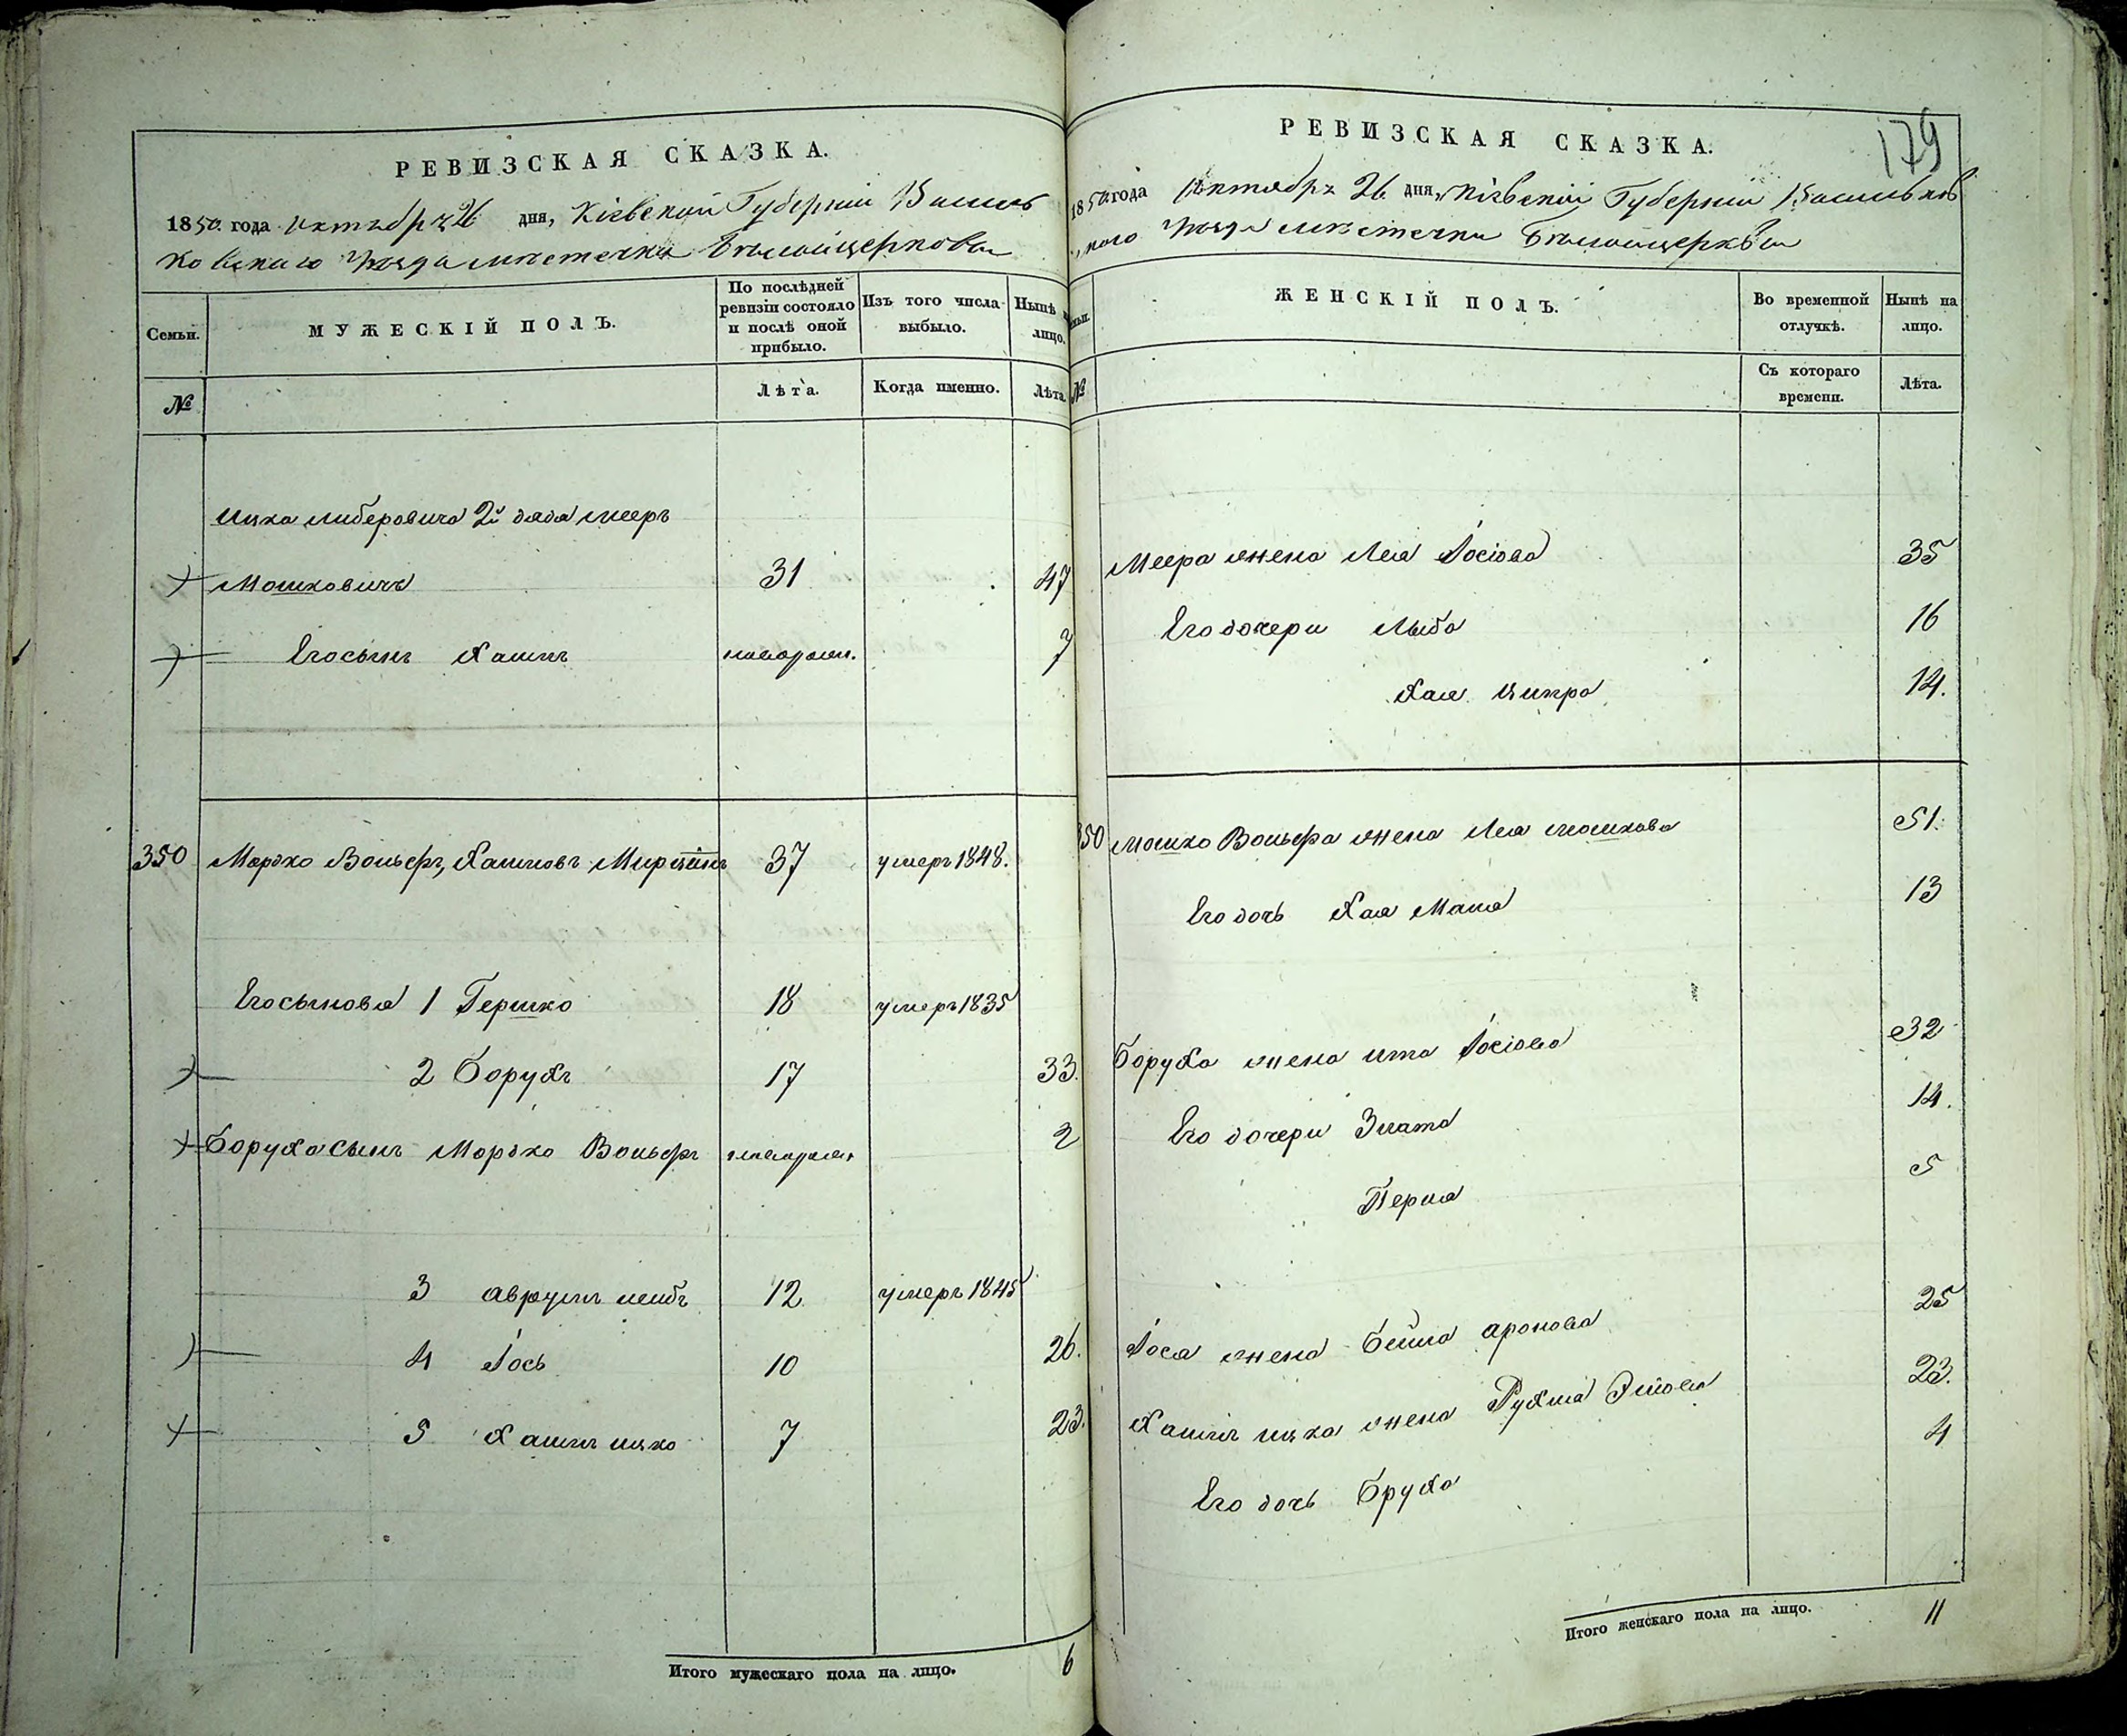 РЕВИЗСКАЯ СКАЗКА.
1850. года октября 26 дня, Кіевской Губерніи Василь
ковскаго уѣзда мѣстечка Бѣлойцеркови
Семьи.
МУЖЕСКІЙ ПОЛЪ.
По послѣдней ревизіи состояло и послѣ оной прибыло.
Изъ того числа выбыло.
Нынѣ на лицо.
№
Лѣта.
Когда именно.
Лѣта.
Ицка Либеровича 2й дядя Мееръ
Мошковичъ 31 47
Его сынъ Хаимъ новорожден. 7
350 Мордко Вольфъ, Хаимовъ 37 умеръ 1848.
Его сыновья 1 Гершко 18 умеръ 1835
2 Борухъ 17 33.
Боруха сынъ Мордко Вольфъ новорожд. 2
3 Аврумъ Лейбъ 12 умеръ 1845
4 Іось 10 26.
5 Хаимъ Ицко 7 23.
Итого мужескаго пола на лицо. 6
РЕВИЗСКАЯ СКАЗКА.
179
1850 года октября 26 дня, Кіевской Губерніи Васильков
скаго уѣзда мѣстечка Бѣлойцеркви
Семьи.
ЖЕНСКІЙ ПОЛЪ.
Во временной отлучкѣ.
Нынѣ на лицо.
№
Съ котораго времени.
Лѣта.
Меера жена Лея Іосіова 35
Его дочери Лыба 16
Хая Ципра 14.
350 Мошко Вольфа жена Лея Мошкова 51.
Его дочь Хая Маля 13
Боруха жена Ита Іосіова 32
Его дочери Злата 14.
Перля 5
Іося жена Бейла Аронова 25
Хаимъ Ицка жена Рухля 23.
Его дочь Бруха 4
Итого женскаго пола на лицо. 11